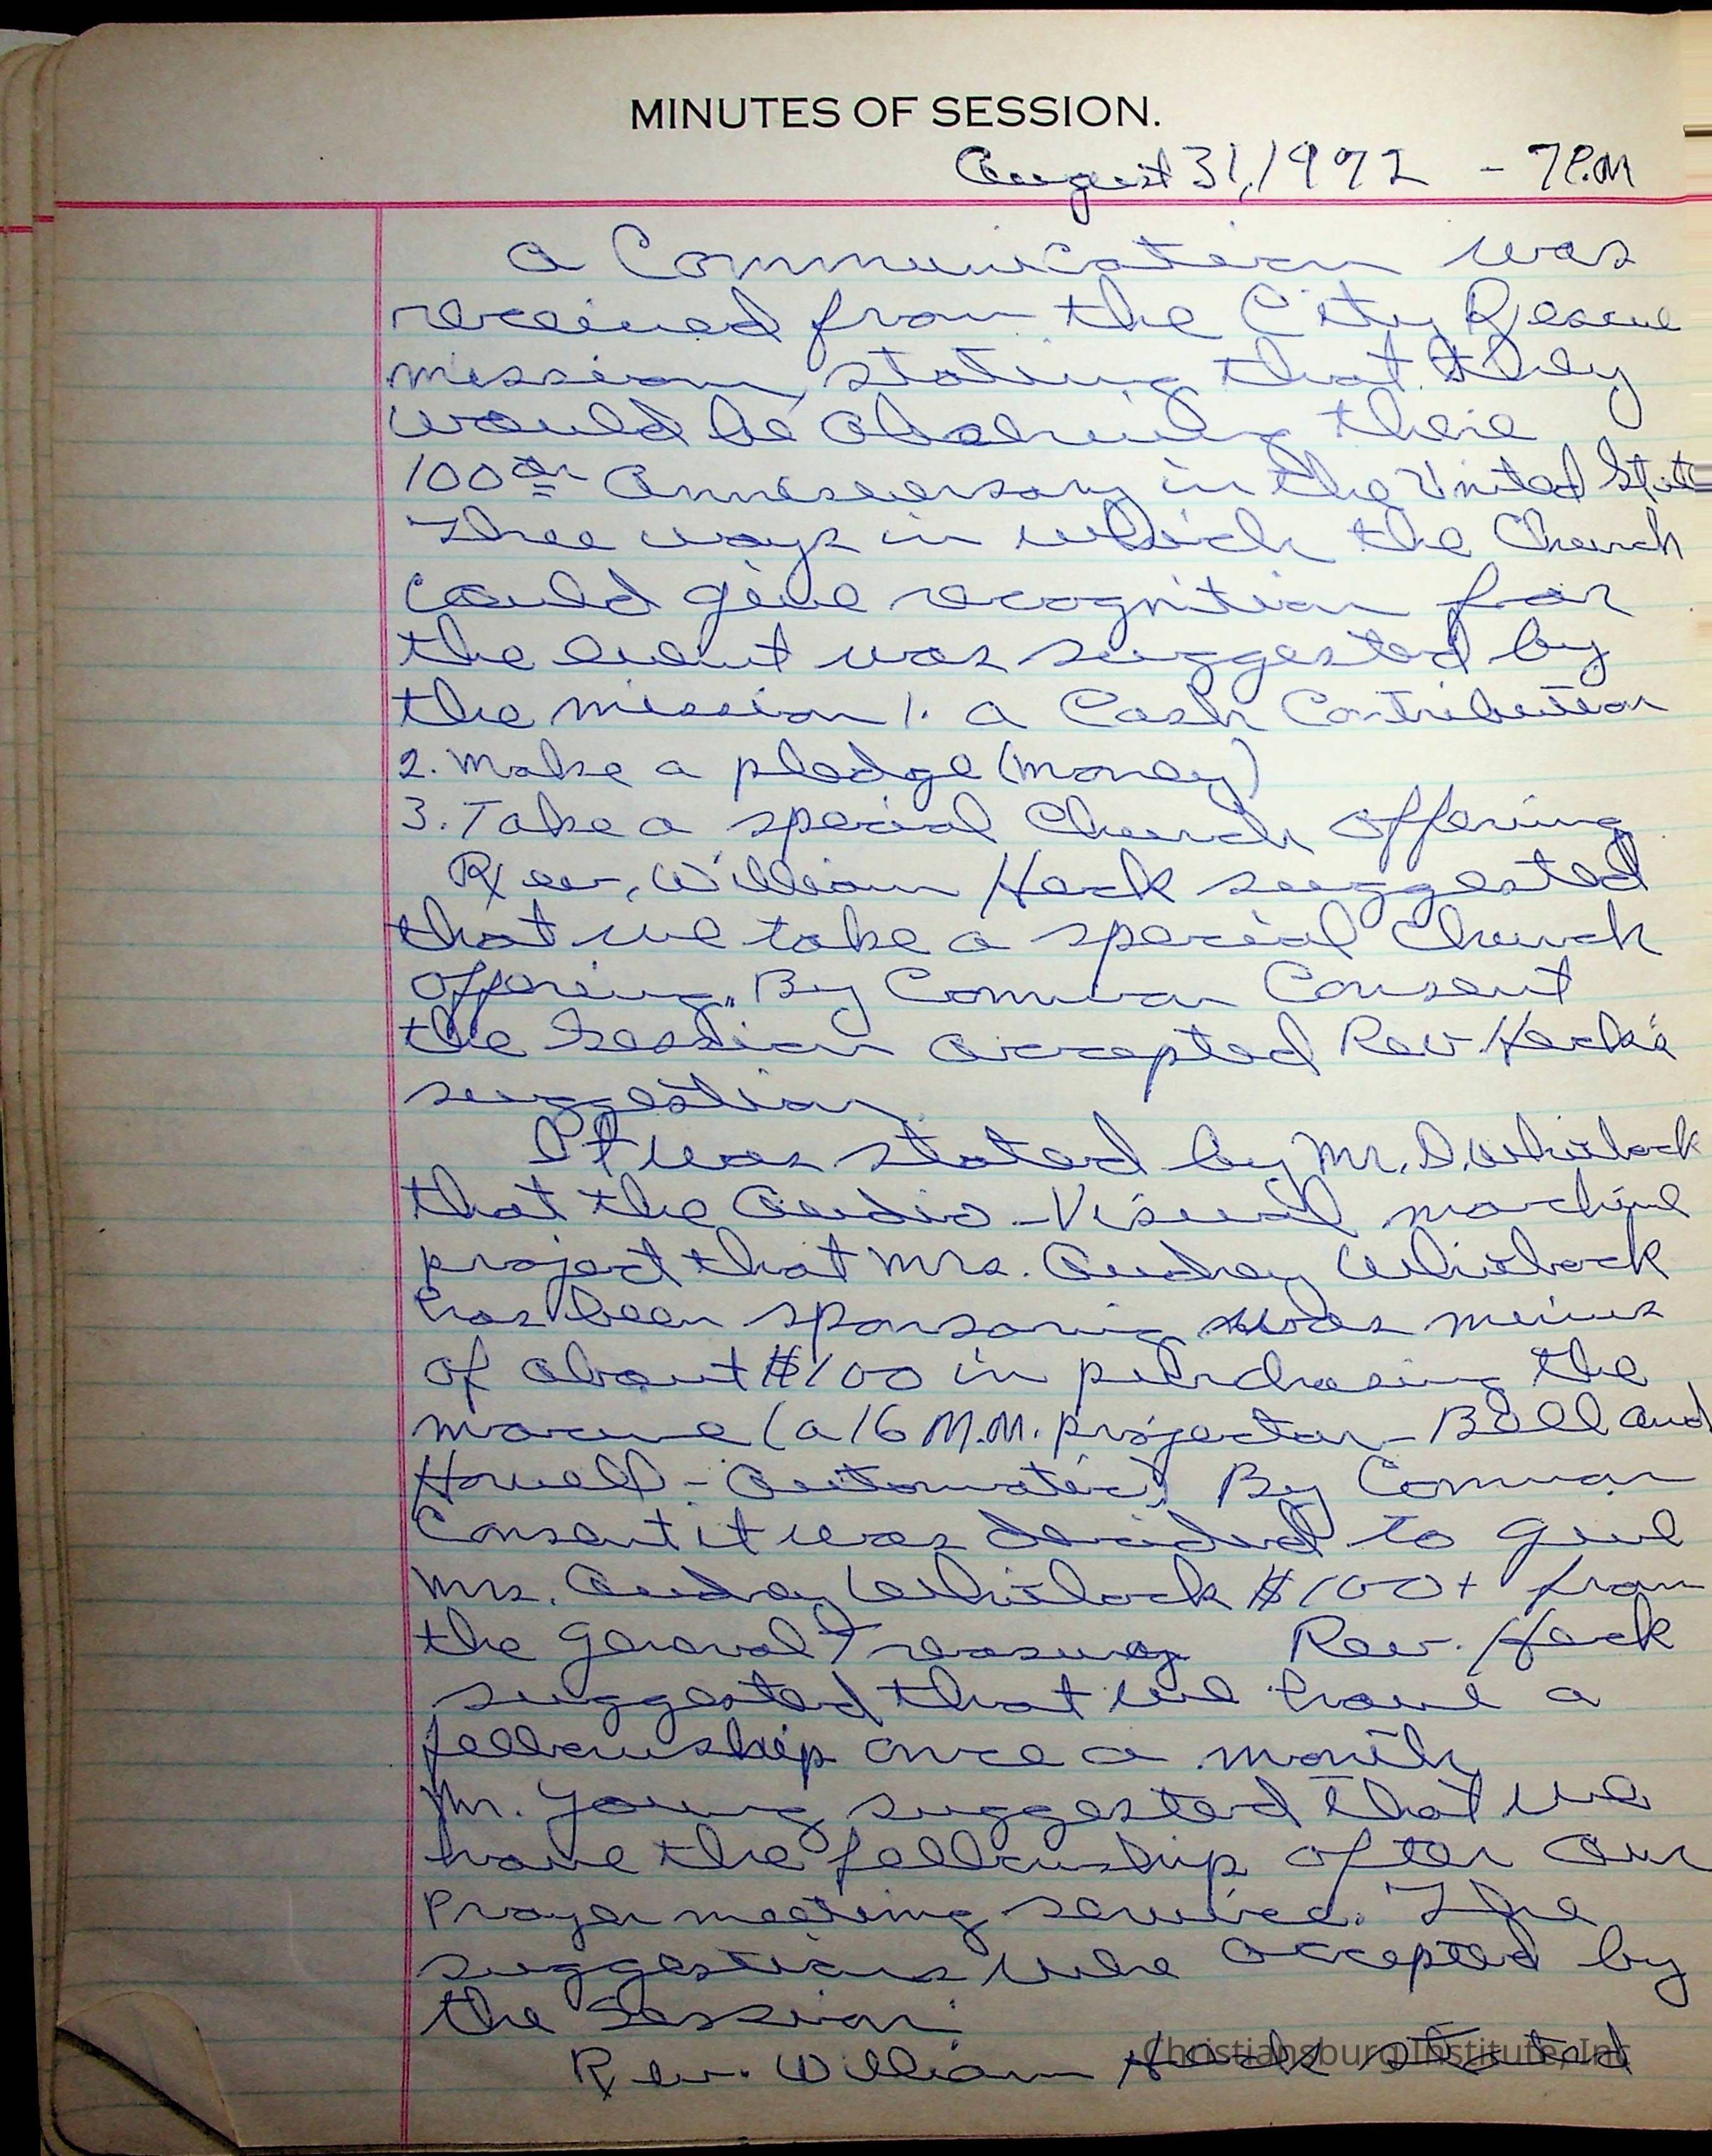 MINUTES OF SESSION.
August 31, 1972 - 7P.M
a Communication was
received from the City Rescue
mission, stating that they
would be observing their
100th Anniseversary in the United State
Three ways in which the Church
could give recognition for
the event was suggested by
the mission 1. a Cash Contribution
2. Make a pledge (money)
3. Take a special Church offering
Rev. William Heck suggested
that we take a special Church
offering. By Common Consent
the Session accepted Rev Heck's
suggestion
It was stated by Mr. D. Whitlock
that the Audio-Visual machine
project that Mrs. Audrey Whitlock
has been sponsoring was minus
of about $100 in purchasing the
(a 16 M.M. projector - Bell and
Howell - Automatic) By Common
Consent it was decided to give
Mrs. Audrey Whitlock $100+ from
the General Treasury Rev. Heck
suggested that we have a
fellowship once a month
Mr. Young suggested that we
have the fellowship after our
Prayer meeting service. The
suggestions were accepted by
the Session.
Rev. William Heck stated
Christiansburg Institute, Inc